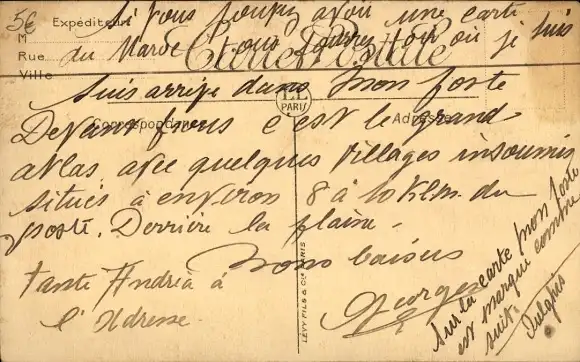 5€
Expéditeur
M
Rue
Ville
Si vous pouvez avoir une carte
du Maroc vous saurez où je suis
Carte Postale
Suis arrivé dans mon poste
ELD
PARIS
Correspondance
Adresse
Devant nous c est le grand
atlas avec quelques villages insoumis
situés à environ 8 à 10 Klm. du
poste. Derrière la plaine.
Bons baisers
Georges
Tante Andréa à
l'Adresse.
LEVY FILS & Cie PARIS
Sur la carte mon poste
est marqué comme
suit.